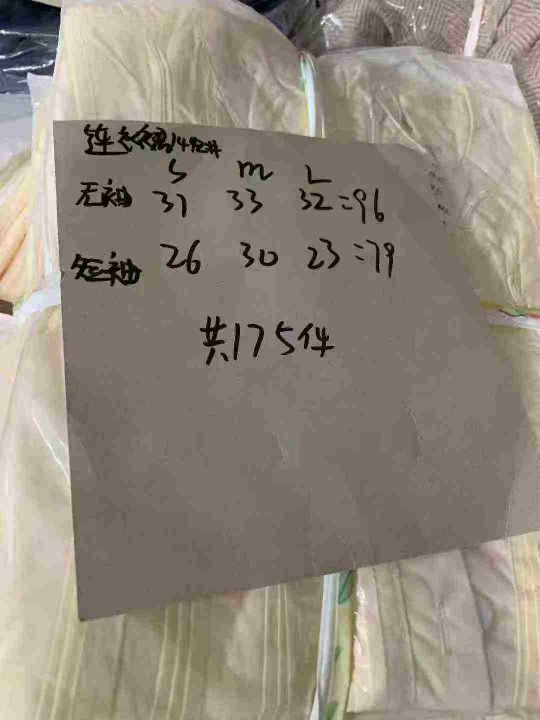 S m L
无袖 31 33 32=96
短袖 26 30 23=79
共175件